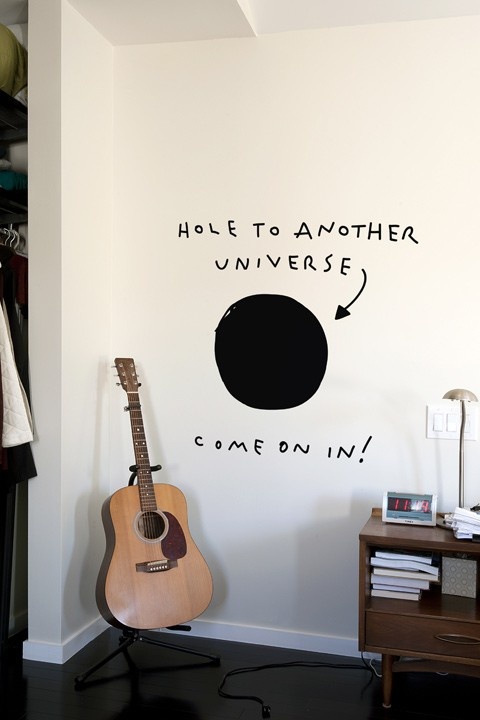 HOLE TO ANOTHER
UNIVERSE
COME ON IN!